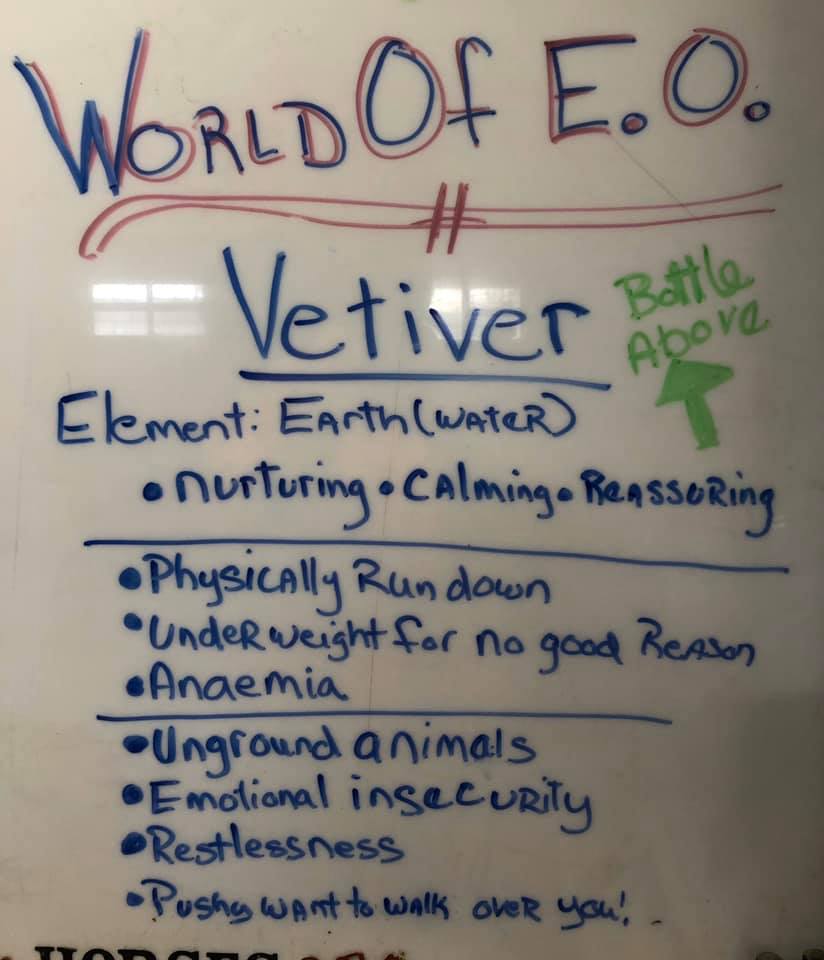 WORLD OF E.O.
Vetiver
Bottle
Above
Element: EArth (WATER)
• nurturing • CAlming • REASSURing
• Physically Run down
• Underweight for no good REASON
• Anaemia
• Unground animals
• Emotional insecurity
• Restlessness
• Pushy WANT to WAlk over you!
HORSES